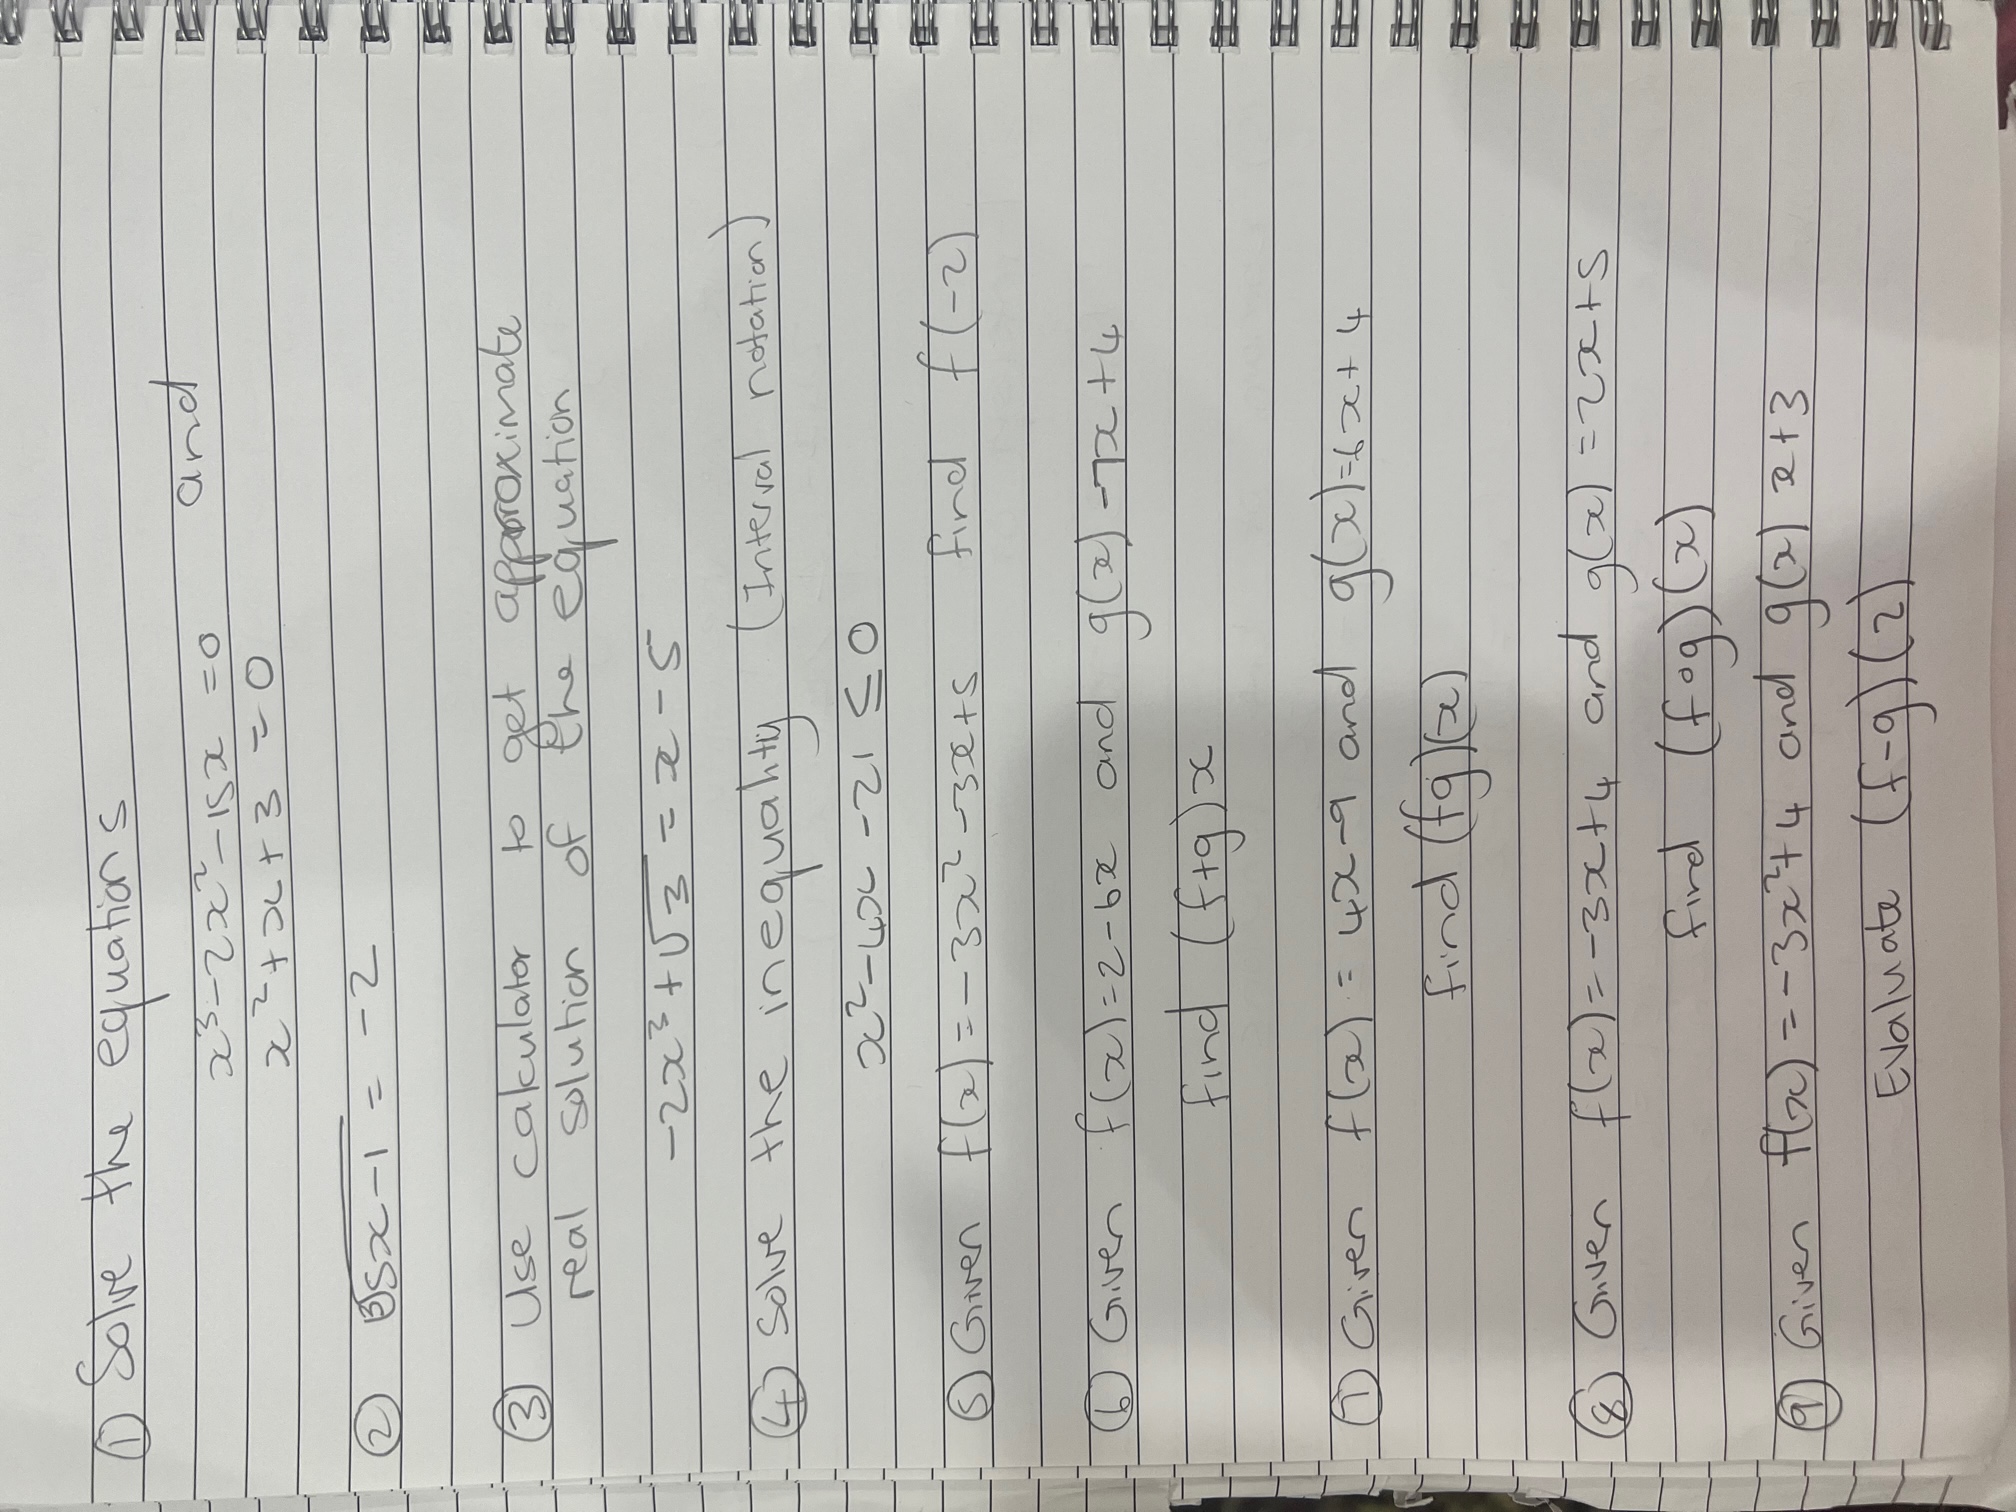 ① Solve the equations
x³-2x²-15x=0 and
x²+x+3=0
② ∛5x-1 = -2
③ Use calculator to get approximate
real solution of the equation
-2x³+√3 = x-5
④ Solve the inequality (Interval notation)
x²-4x-21≤0
⑤ Given f(x)=-3x²-3x+5 find f(-2)
⑥ Given f(x)=2-6x and g(x)-7x+4
find (f+g)x
⑦ Given f(x)=4x-9 and g(x)=6x+4
find (fg)(x)
⑧ Given f(x)=-3x+4 and g(x)=2x+5
find (fog)(x)
⑨ Given f(x)=-3x²+4 and g(x) x+3
Evaluate (f-g)(2)